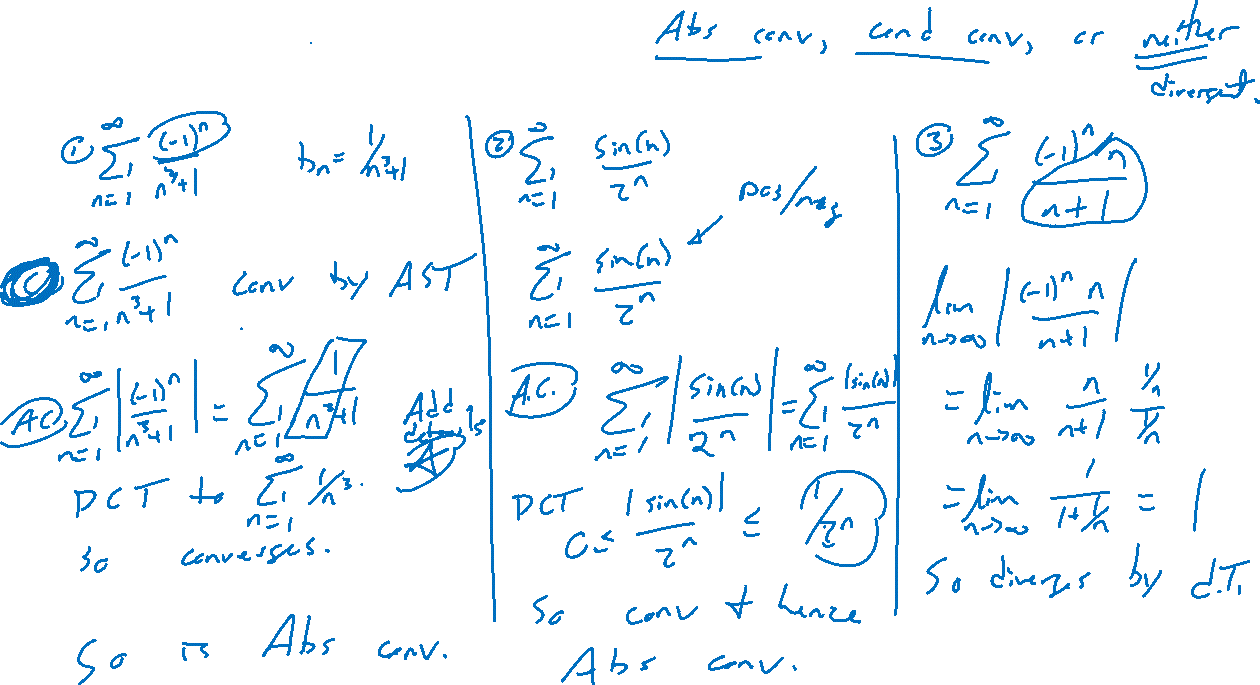 Abs conv, cond conv, or neither
divergent.
① ∞∑n=1 (-1)^n/(n^3+1) b_n = 1/(n^3+1)
∞∑n=1 (-1)^n/(n^3+1) conv by AST
A.C. ∞∑n=1 |(-1)^n/(n^3+1)| = ∞∑n=1 1/(n^3+1) Add
details
DCT to ∞∑n=1 1/n^3.
so converges.
So is Abs conv.
② ∞∑n=1 sin(n)/2^n
pos/neg
∞∑n=1 sin(n)/2^n
A.C. ∞∑n=1 |sin(n)/2^n| = ∞∑n=1 |sin(n)|/2^n
DCT 0 ≤ |sin(n)|/2^n ≤ 1/2^n
So conv + hence
Abs conv.
③ ∞∑n=1 (-1)^n n/(n+1)
lim n→∞ |(-1)^n n/(n+1)|
= lim n→∞ n/(n+1) (1/n)/(1/n)
= lim n→∞ 1/(1+1/n) = 1
So diverges by d.T.